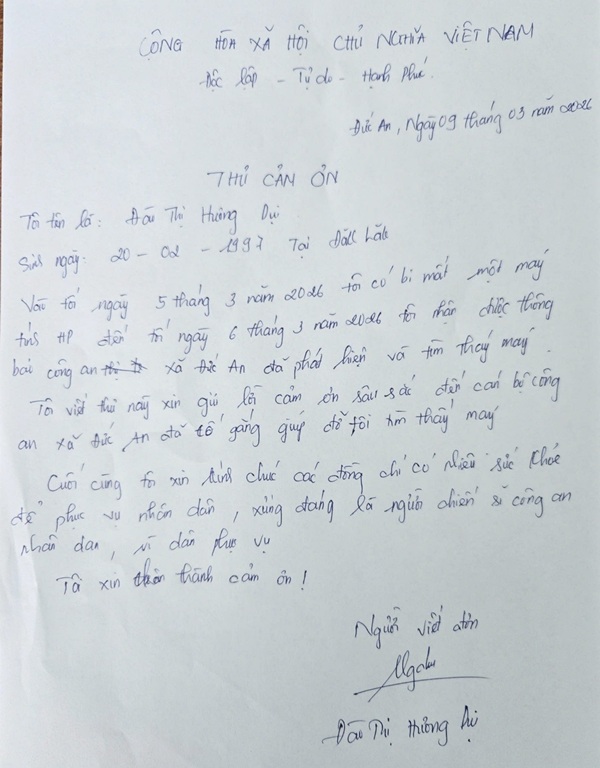 CỘNG HÒA XÃ HỘI CHỦ NGHĨA VIỆT NAM
Độc lập - Tự do - Hạnh Phúc.
Đức An, Ngày 09 tháng 03 năm 2026
THƯ CẢM ƠN
Tôi tên là: Đào Thị Hương Dịu
Sinh ngày: 20 - 02 - 1997 Tại Đăk Lăk
Vào tối ngày 5 tháng 3 năm 2026 tôi có bị mất một máy
tính HP đến tối ngày 6 tháng 3 năm 2026 tôi nhận được thông
báo công an xã Đức An đã phát hiện và tìm thấy máy.
Tôi viết thư này xin gửi lời cảm ơn sâu sắc đến cán bộ công
an xã Đức An đã cố gắng giúp đỡ tôi tìm thấy máy
Cuối cùng tôi xin kính chúc các đồng chí có nhiều sức khỏe
để phục vụ nhân dân, xứng đáng là người chiến sĩ công an
nhân dân, vì dân phục vụ
Tôi xin chân thành cảm ơn!
Người viết đơn
Đào Thị Hương Dịu